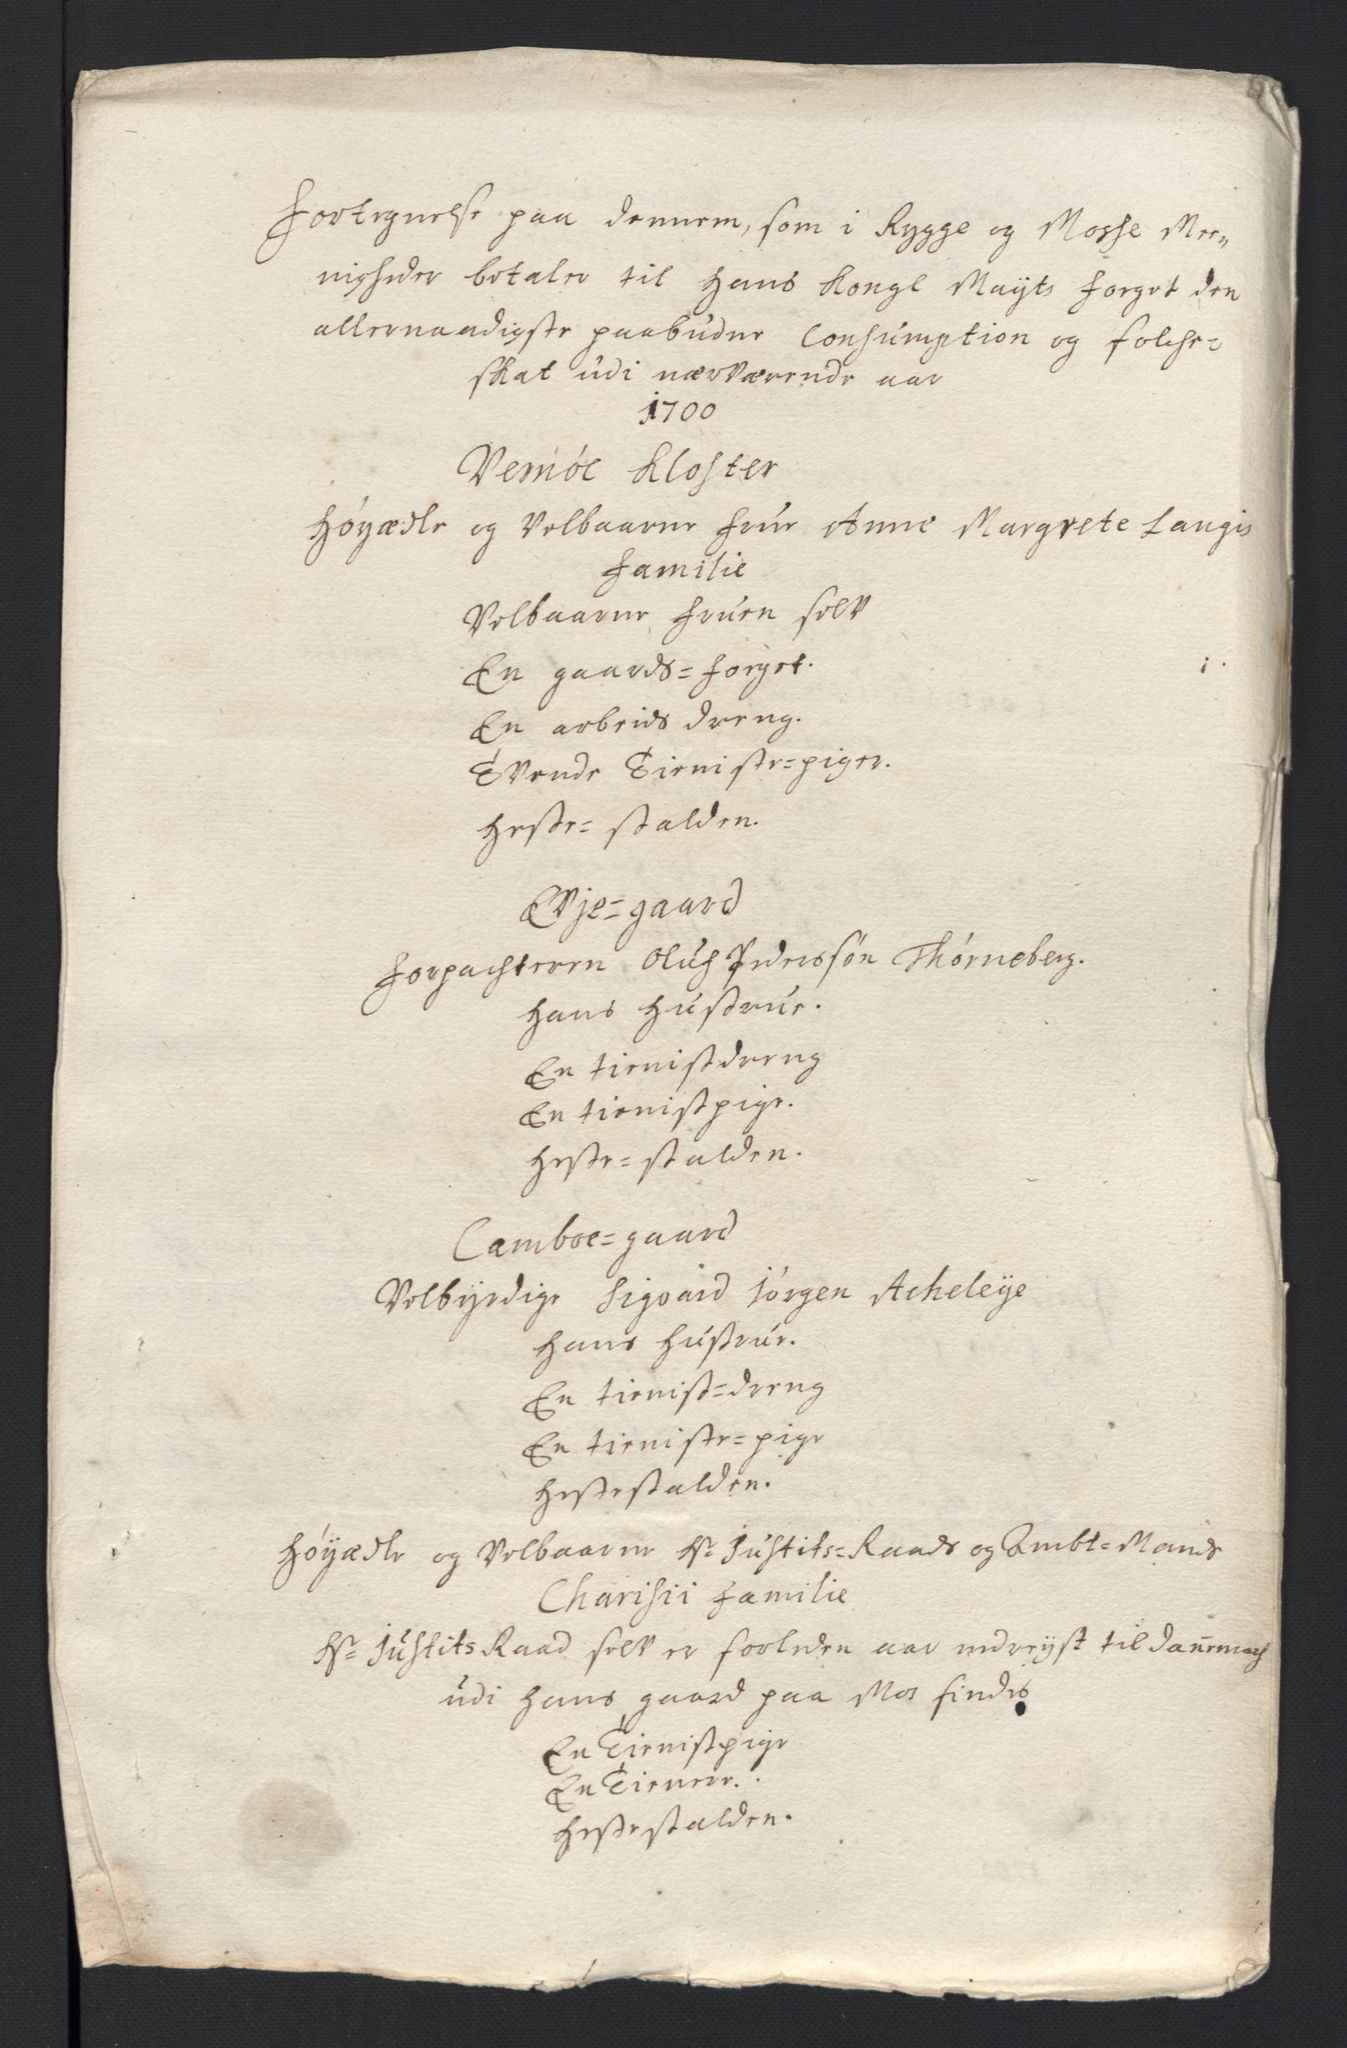 Fortegnelse paa dennem, som i Rygge og Mosse Mee„
nigheder betaler til Hans Kongl Mayts Foget den
allernaadigste paabudne Consumption og folche=
skat udi nærværende aar
1700
Vernöe Kloster
Høyædle og Velbaarne Frue Anne Margrete Langis
Familie
Velbaarne Fruen selv
En gaards=foget. 1.
En arbeids dreng.
Tvende Tieniste=piger.
Heste=stalden.
Evje=gaard
Forpachteren Oluf Pederssøn Thørneberg.
Hans Hustrue.
En tienistdreng
En tienistpige.
Heste=stalden.
Camboe=gaard
Velbyrdige Sigvard Jörgen Acheleÿe
Hans Hustrue.
En tienist=dreng
En tieniste=pige
Hestestalden.
Høÿædle og Velbaarne Hr Justits=Raads og Ambt=Mands
Charisii Familie
Hr Justits Raad selv er forleden aar nedreÿst til Dañemach
udi Hans gaard paa Mos findis
En Tienistpige
En Tienere.
Hestestalden.